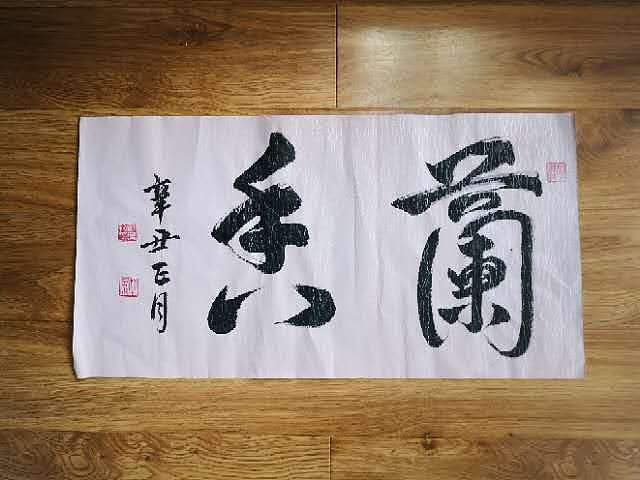 蘭香
辛丑正月